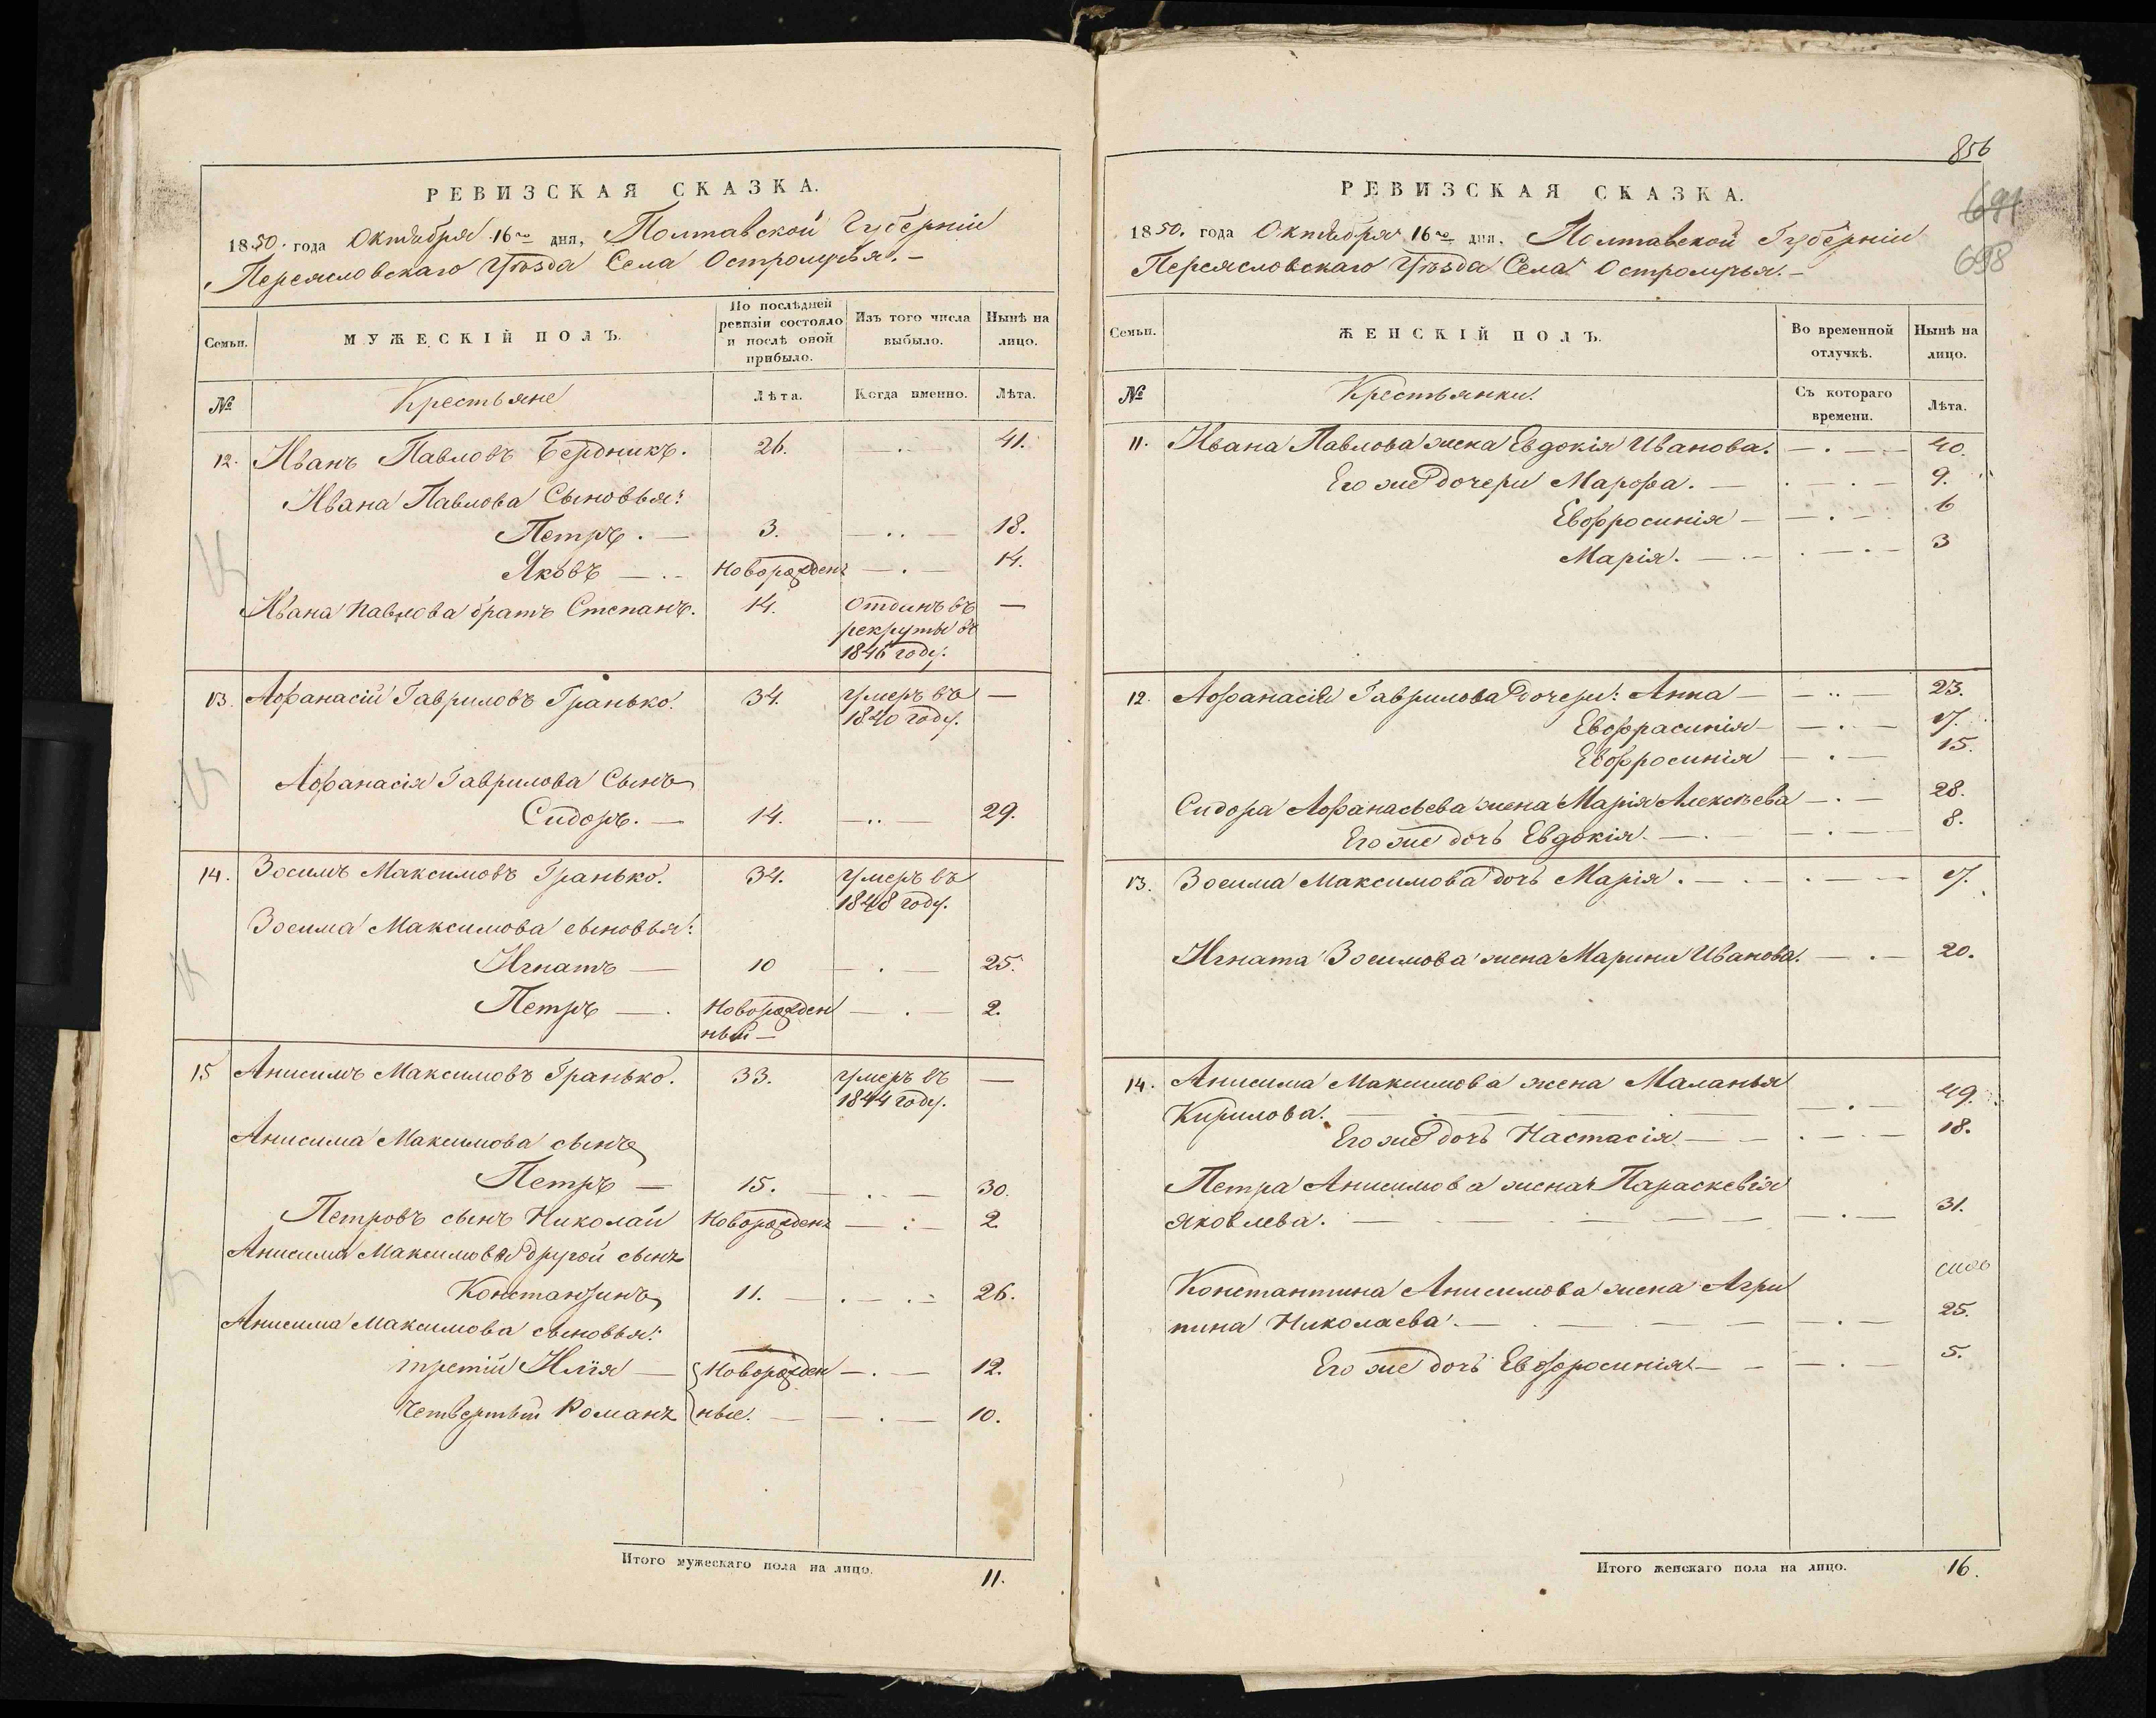 РЕВИЗСКАЯ СКАЗКА.
1850. года Октября 16го дня, Полтавской Губерніи
Переясловскаго Уѣзда Села Остролучья. —
Семьи. МУЖЕСКІЙ ПОЛЪ. По послѣдней ревизіи состояло и послѣ оной прибыло. Изъ того числа выбыло. Нынѣ на лицо.
№ Крестьяне Лѣта. Когда именно. Лѣта.
12. Иванъ Павловъ Бердникъ. 26. — 41.
Ивана Павлова Сыновья:
Петръ. — 3. — 18.
Яковъ — Новорожденъ — 14.
Ивана Павлова братъ Степанъ. 14. Отданъ въ —
рекруты въ
1846 году.
13. Афанасій Гавриловъ Гранько. 34. умеръ въ —
1840 году.
Афанасія Гаврилова Сынъ
Сидоръ. — 14. — 29.
14. Зосимъ Максимовъ Гранько. 34. умеръ въ
1848 году.
Зосима Максимова сыновья:
Игнатъ — 10 — 25.
Петръ — Новорожден — 2.
ный —
15 Анисимъ Максимовъ Гранько. 33. умеръ въ —
1844 году.
Анисима Максимова сынъ
Петръ — 15. — 30.
Петровъ сынъ Николай Новорожденъ — 2.
Анисима Максимова другой сынъ
Константинъ 11. — 26.
Анисима Максимова сыновья:
третій Илія — Новорожден — 12.
Четвертый Романъ ные. — 10.
Итого мужескаго пола на лицо. 11.
856
691
698
РЕВИЗСКАЯ СКАЗКА.
1850. года Октября 16го дня, Полтавской Губерніи
Переясловскаго Уѣзда Села Остролучья. —
Семьи. ЖЕНСКІЙ ПОЛЪ. Во временной отлучкѣ. Нынѣ на лицо.
№ Крестьянки. Съ котораго времени. Лѣта.
11. Ивана Павлова жена Евдокія Иванова. — 40.
Его же дочери Марфа. — 9.
Евфросинія — 6
Марія. — 3
12. Афанасія Гаврилова дочери: Анна — 23.
Евфрасинія — 17.
Евфросинія — 15.
Сидора Афанасьева жена Марія Алексѣева — 28.
Его же дочь Евдокія. — 8.
13. Зосима Максимова дочь Марія. — 17.
Игната Зосимова жена Марина Иванова. — 20.
14. Анисима Максимова жена Маланья
Кирилова. — 49.
Его же дочь Настасія. — 18.
Петра Анисимова жена Параскевія
Яковлева. — 31.
Константина Анисимова жена Агри
пина Николаева. — 25.
Его же дочь Евфросинія. — 5.
Итого женскаго пола на лицо. 16.